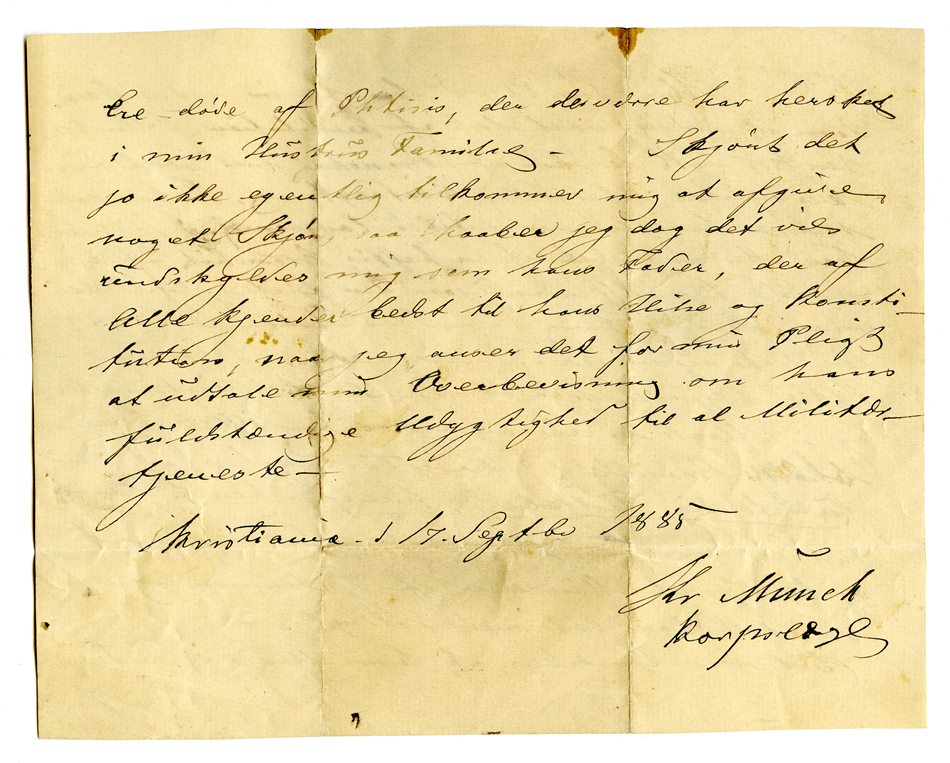 ere døde af Phtisis, der desværre har hersket
i min Hustrus Familie – Skjönt det
jo ikke egentlig tilkommer mig at afgive
noget Skjøn, saa haaber jeg dog det vil
undskyldes mig som hans Fader, der af
Alle kjender bedst til hans Helse og Konsti-
tution, naar jeg anser det for min Pligt
at udtale min Overbevisning om hans
fuldstændige Udygtighed til al Militær-
tjeneste –
Kristiania d 17. Septbr 1885
Chr Munch
Korpslæge